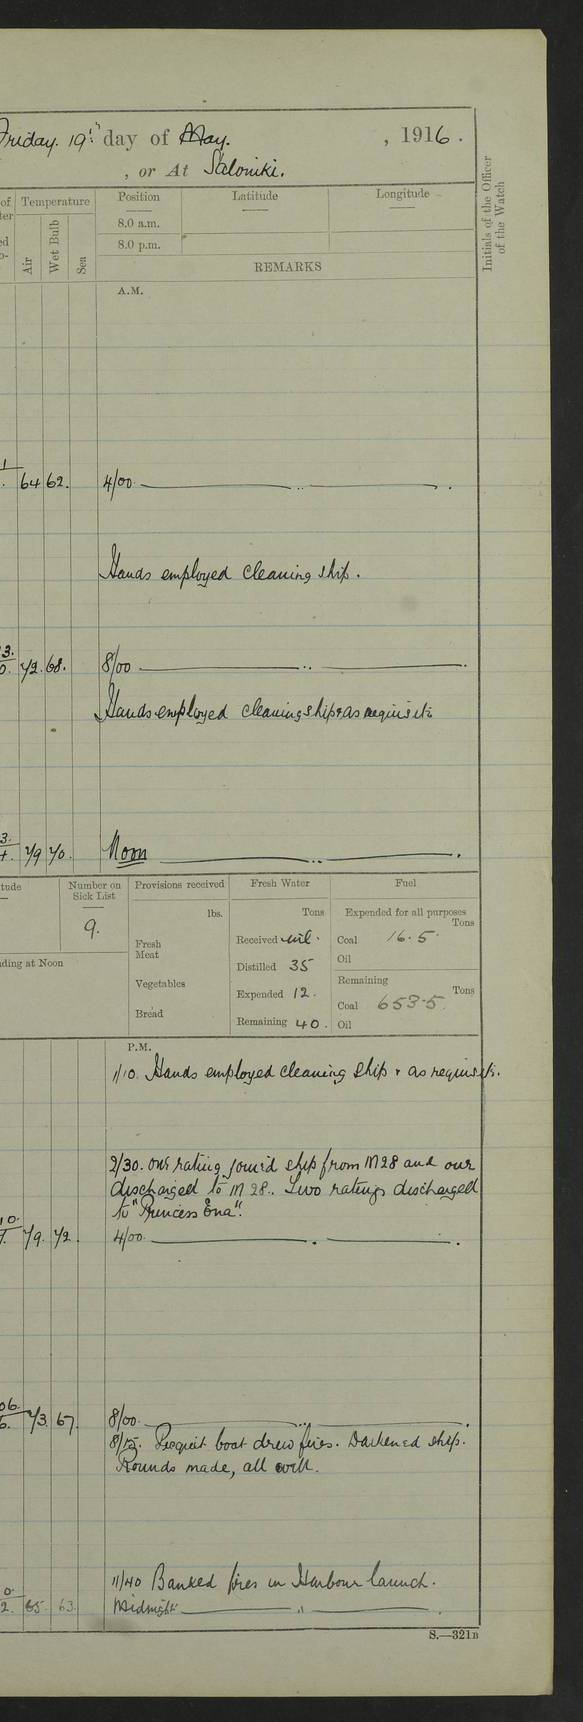 Friday. 19th day of May. , 1916 .
, or At Saloniki.
of Temperature Position Latitude Longitude
Air Wet Bulb Sea
8.0 a.m.
8.0 p.m.
Initials of the Officer
of the Watch
REMARKS
A.M.
64 62. 4/00
Hands employed cleaning ship.
72. 68. 8/00
Hands employed cleaning ship & as requisite
79 70. Noon
Number on Sick List Provisions received Fresh Water Fuel
9.
lbs. Tons Expended for all purposes
Tons
Fresh Meat Received nil. Coal 16.5.
Distilled 35 Oil
Vegetables Remaining
Expended 12. Tons
Coal 653.5.
Bread Remaining 40. Oil
ding at Noon
P.M.
1/10. Hands employed cleaning ship & as requisite.
2/30. one rating joined ship from M28 and one
discharged to M 28. Two ratings discharged
to "Princess Ena".
79. 72. 4/00.
73. 67. 8/00.
8/15. Picquet boat drew fires. Darkened ship.
Rounds made, all well.
11/40 Banked fires in Harbour launch.
65. 63. Midnight
S.—321B